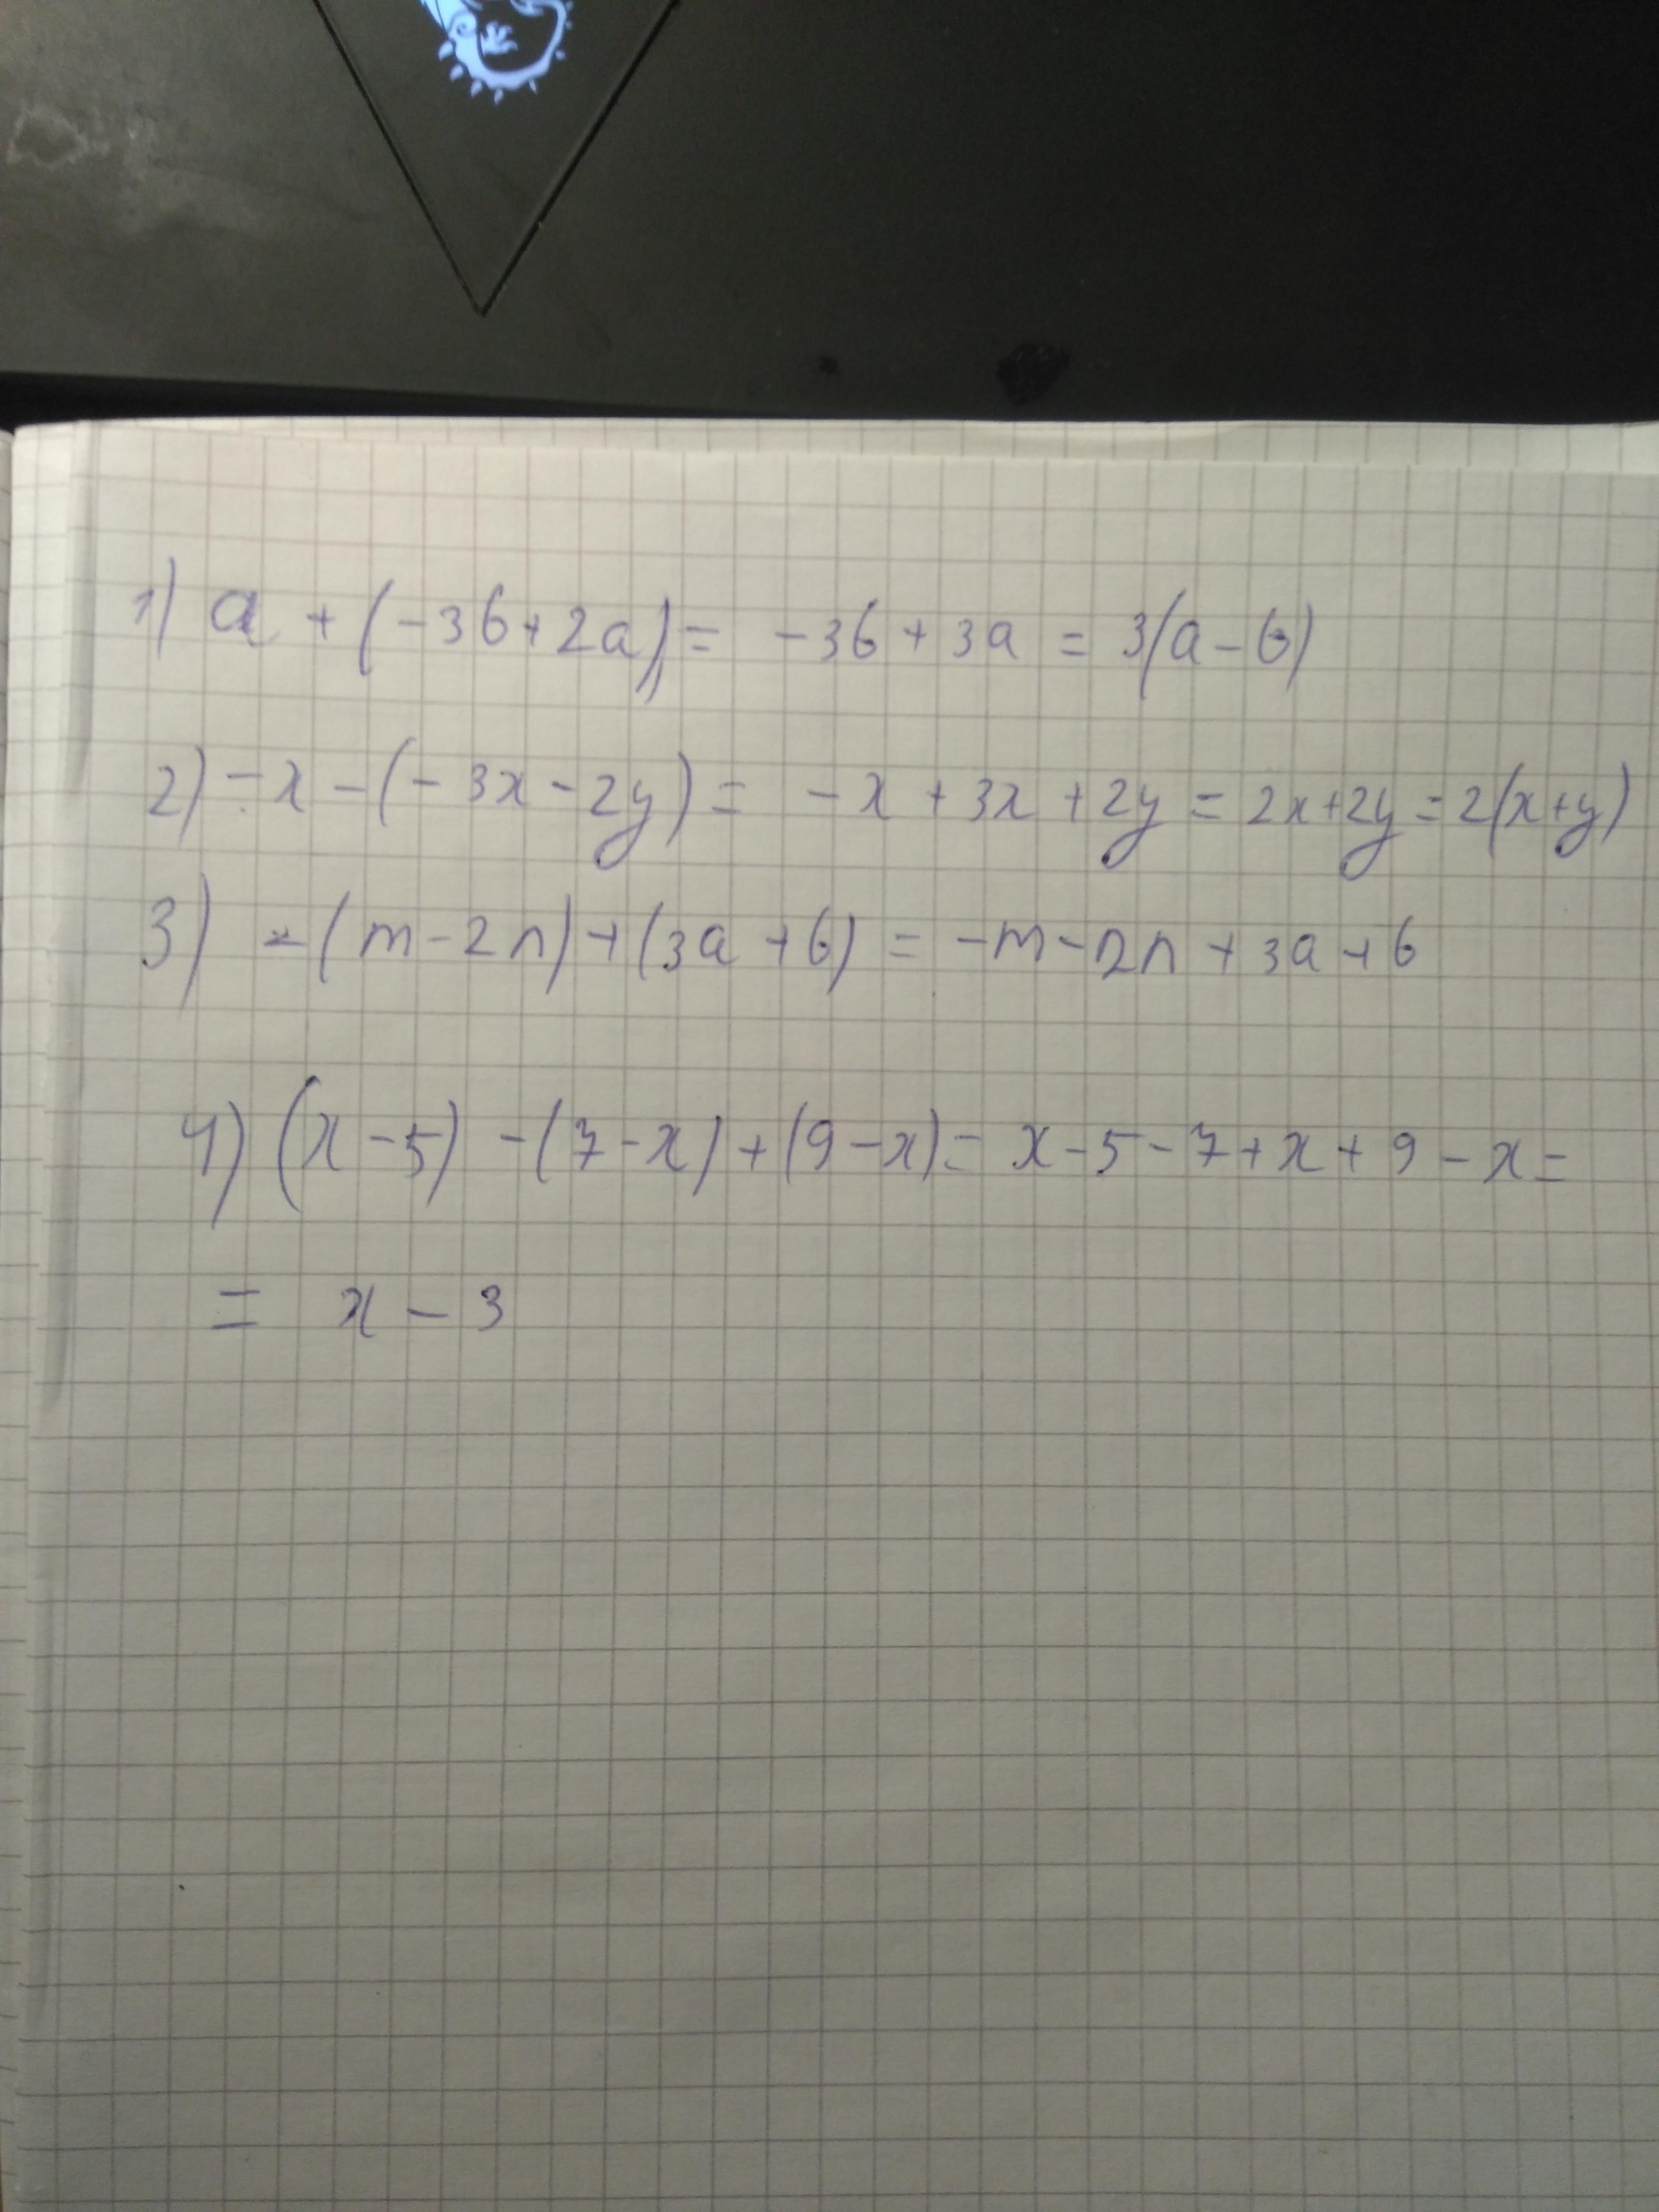 1) a + (-3b+2a) = -3b + 3a = 3(a-b)
2) -x - (-3x-2y) = -x + 3x + 2y = 2x+2y = 2(x+y)
3) -(m-2n)+(3a+b) = -m-2n + 3a + b
4) (x-5) - (7-x) + (9-x) = x-5-7+x+9-x =
= x - 3